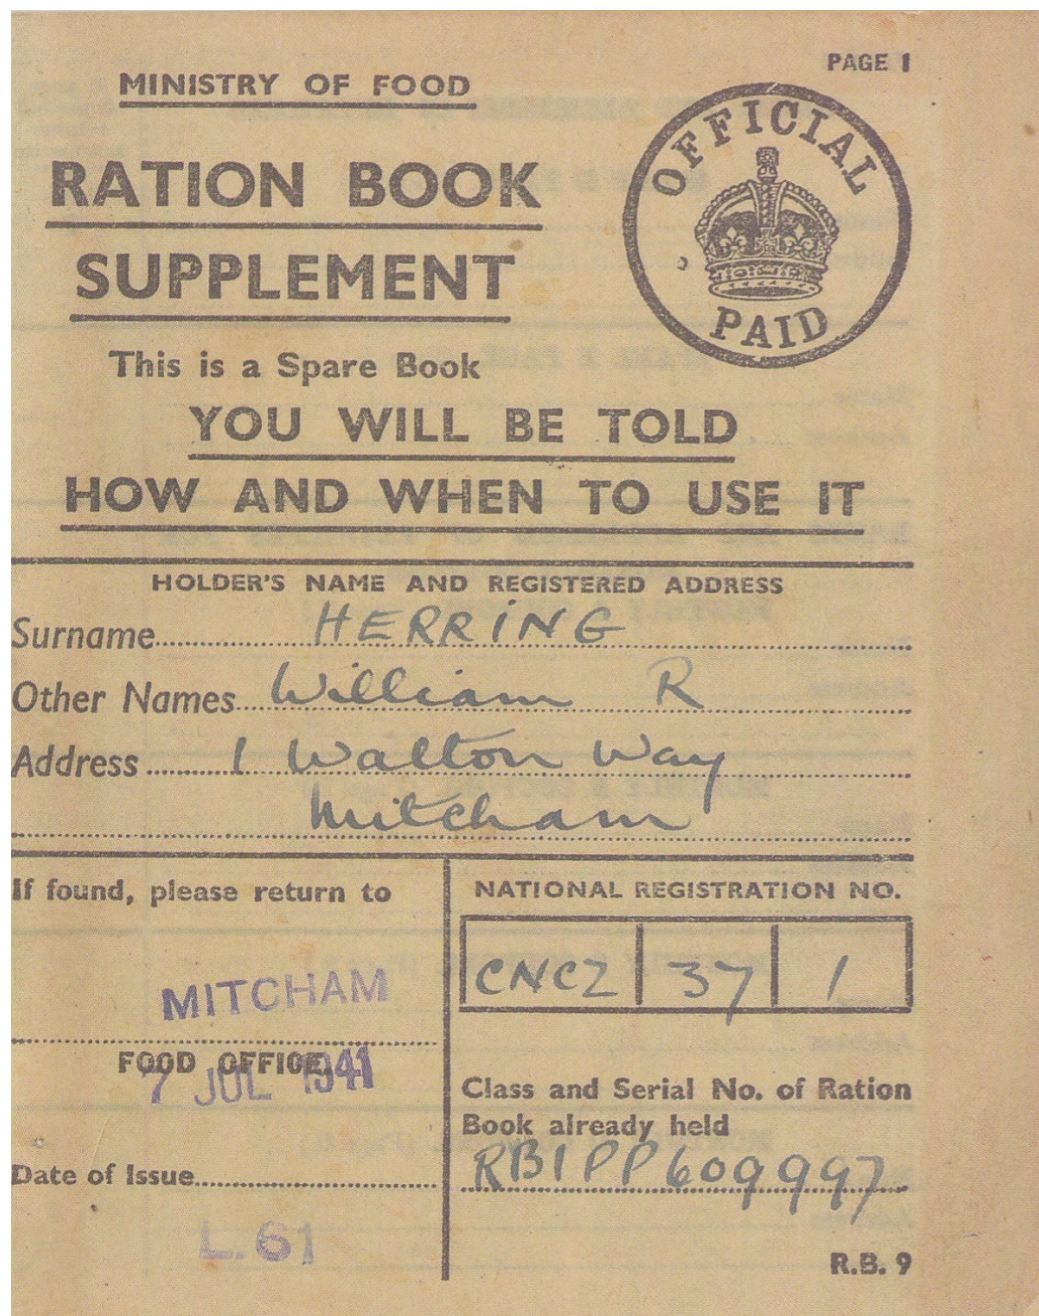 PAGE 1
MINISTRY OF FOOD
OFFICIAL
PAID
RATION BOOK
SUPPLEMENT
This is a Spare Book
YOU WILL BE TOLD
HOW AND WHEN TO USE IT
HOLDER'S NAME AND REGISTERED ADDRESS
Surname HERRING
Other Names William R
Address 1 Walton Way
Mitcham
If found, please return to
MITCHAM
FOOD OFFICE.
7 JUL 1941
Date of Issue
L.61
NATIONAL REGISTRATION NO.
CNCZ 37 1
Class and Serial No. of Ration
Book already held
RB1PP609997
R.B. 9